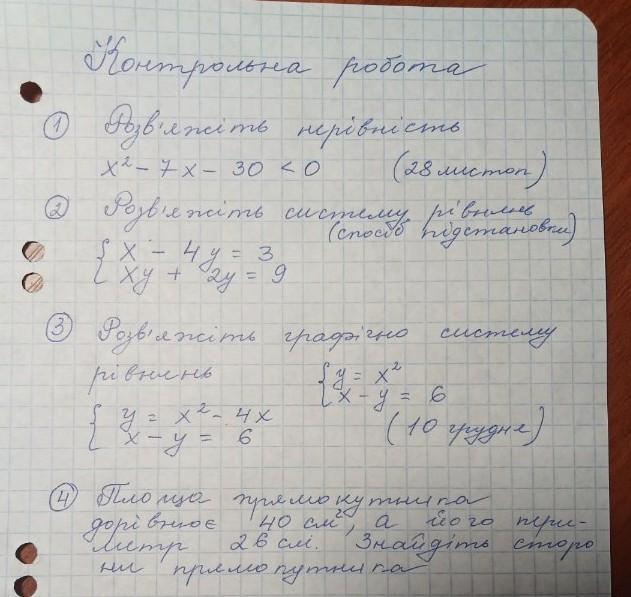 Контрольна робота
① Розв'яжіть нерівність
x² - 7x - 30 < 0 (28 листоп)
② Розв'яжіть систему рівнянь
(спосіб підстановки)
{ x - 4y = 3
xy + 2y = 9
③ Розв'яжіть графічно систему
рівнянь { y = x²
x - y = 6
{ y = x² - 4x
x - y = 6 (10 грудня)
④ Площа прямокутника
дорівнює 40 см², а його пери-
метр 26 см. Знайдіть сторо
ни прямокутника